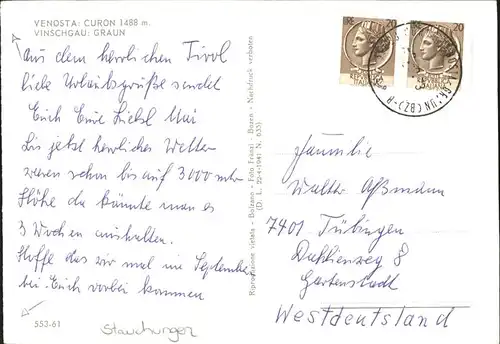 VENOSTA: CURON 1488 m.
VINSCHGAU: GRAUN
Aus dem herrlichen Tirol
liebe Urlaubsgrüße sendet
Euch Eure Liebel Mai
bis jetzt herrliches Wetter
waren schon bis auf 3000 mtr
Höhe da könnte man es
3 Wochen aushalten.
Hoffe das wir mal im September
bei Euch vorbei kommen
553-61
Stauchungen
Riproduzione vietata - Bolzano - Foto Fränzl - Bozen - Nachdruck verboten
(D. L. 22-4-1941 N. 633)
20
20
Familie
Walter Aßmann
7401 Tübingen
Dahlienweg 8
Gartenstadt
Westdeutschland